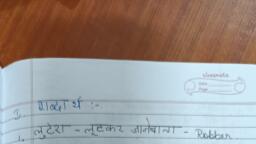 classmate
Date
Page
I. शब्दार्थ :-
1. लुटेरा - लूटकर जानेवाला - Robber.